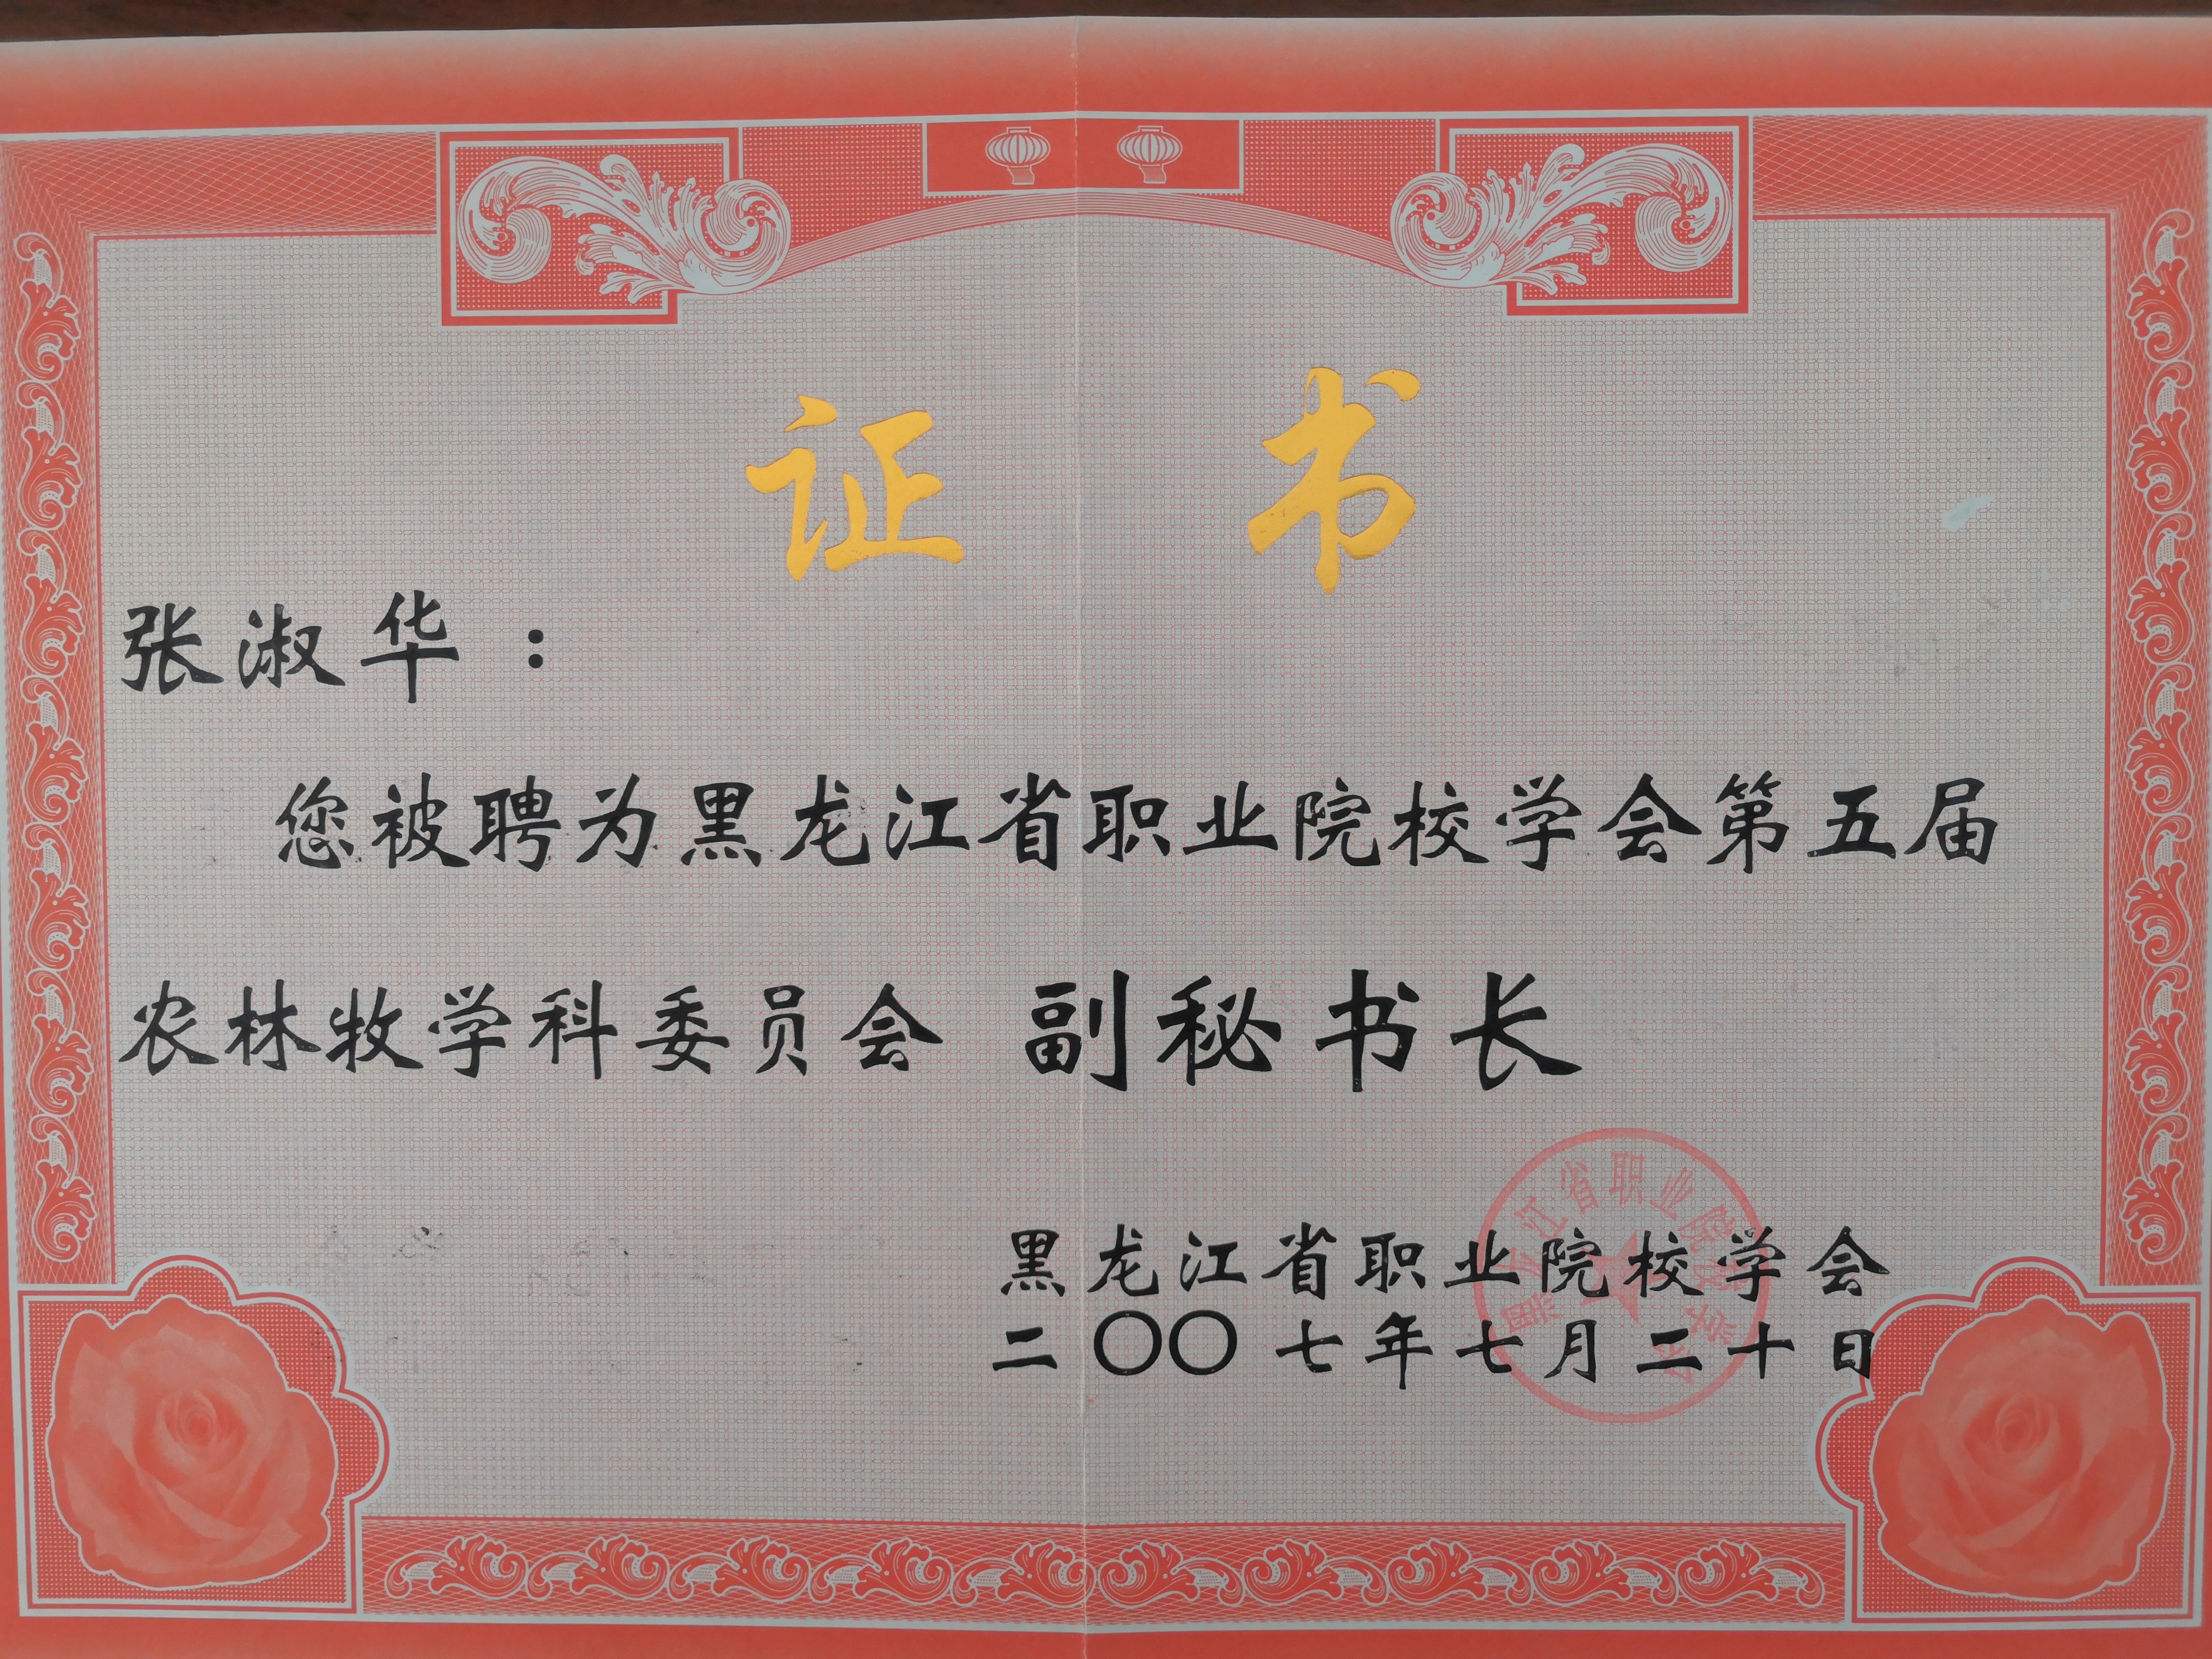 证书
张淑华：
您被聘为黑龙江省职业院校学会第五届
农林牧学科委员会 副秘书长
黑龙江省职业院校学会
二〇〇七年七月二十日
黑龙江省职业院校学会